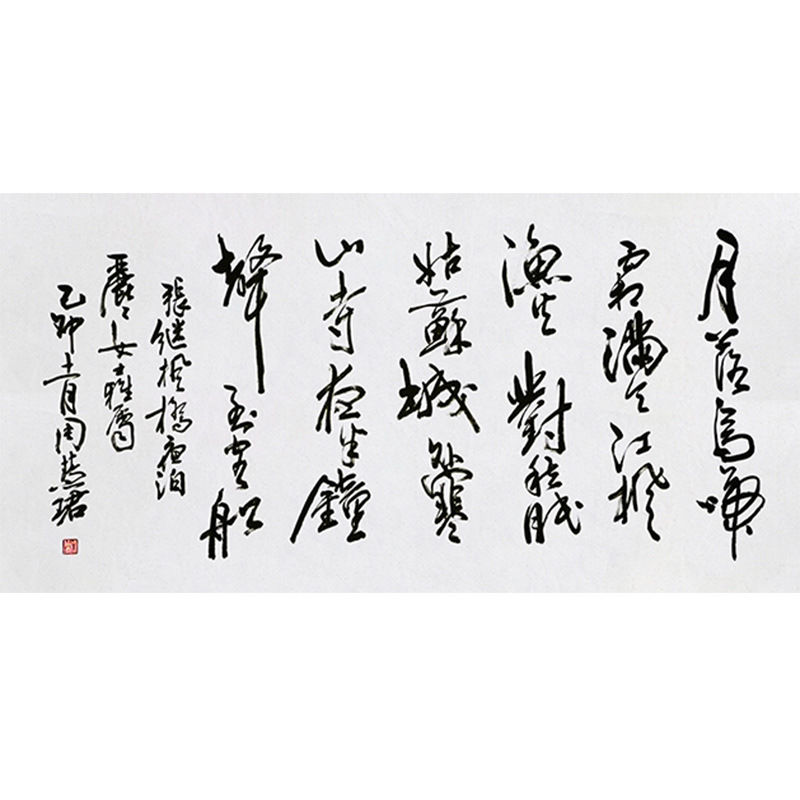 月落烏啼
霜滿天江楓
漁火對愁眠
姑蘇城外寒
山寺夜半鐘
聲到客船
張继楓橋夜泊
女屬
乙卯月周慧珺